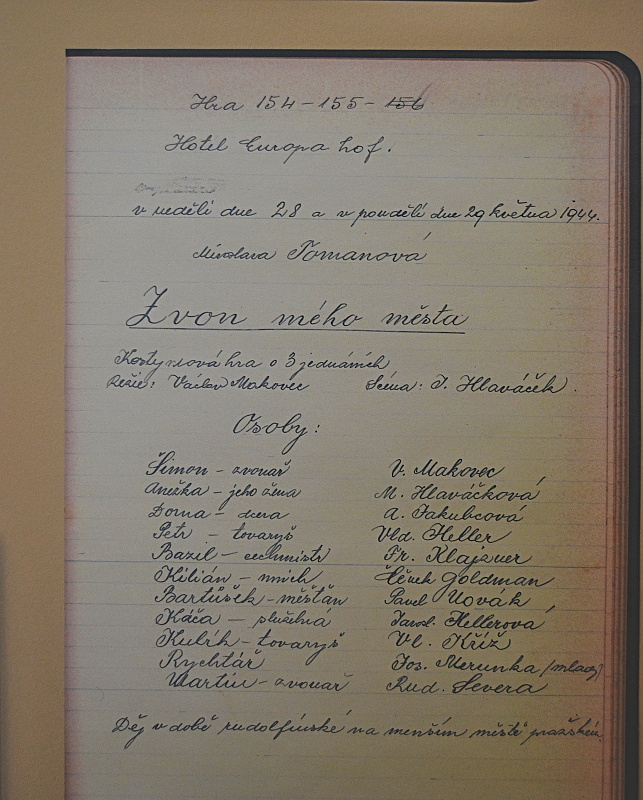 Hra 154 - 155 - 156
Hotel Europa hof.
v neděli dne 28 a v pondělí dne 29 května 1944.
Miroslava Tomanová
Zvon mého města
Kostymová hra o 3 jednáních
Režie: Václav Makovec Scéna: J. Hlaváček.
Osoby:
Šimon - zvonař V. Makovec
Anežka - jeho žena M. Hlaváčková
Dorna - dcera A. Jakubcová
Petr - tovaryš Vld. Heller
Bazil - cechmistr Fr. Klajzner
Kilián - mnich Čeněk Goldman
Bartůšek - měštan Pavel Novák
Káča - služebná Jarosl. Hellerová
Kulrk - tovaryš Vl. Kříž
Rychtář Jos. Merunka (mladý)
Martin - zvonař Rud. Severa
Děj v době rudolfinské na menším městě pražském.